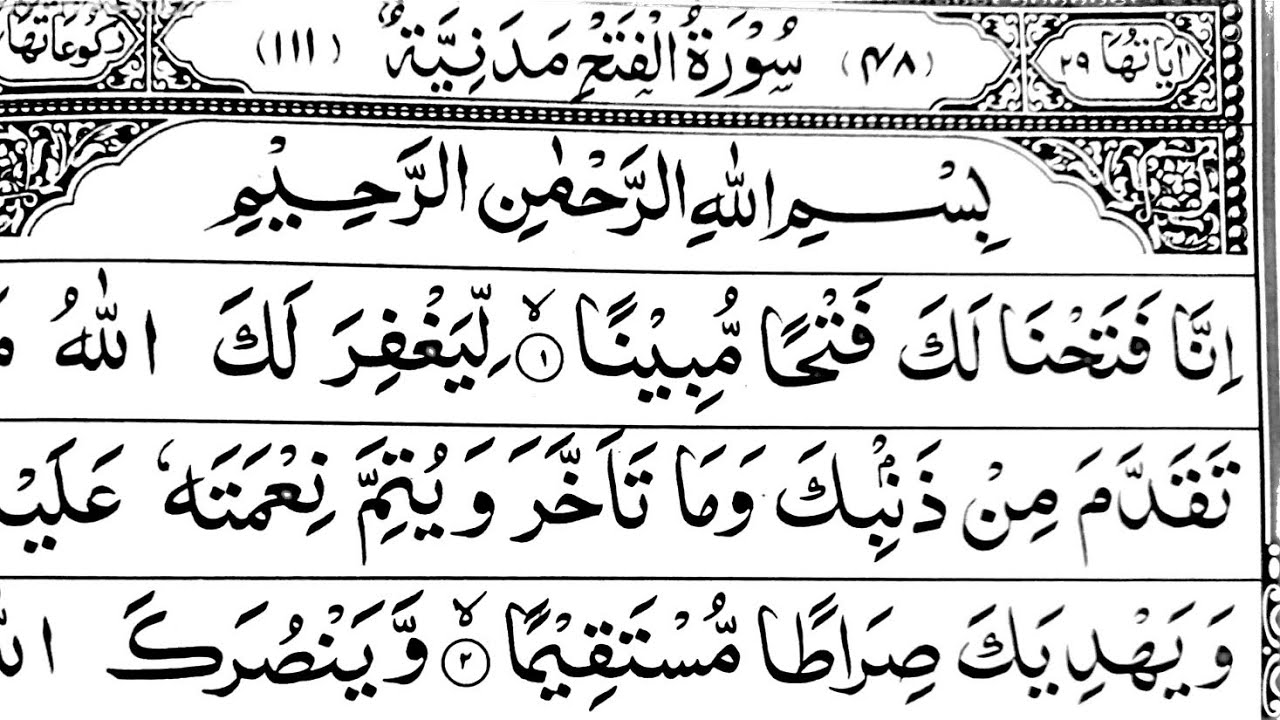 اٰيَاتُهَا ٢٩ (٤٨) سُوْرَةُ الْفَتْحِ مَدَنِيَّةٌ (١١١) رُكُوْعَاتُهَا
بِسْمِ اللّٰهِ الرَّحْمٰنِ الرَّحِيْمِ
اِنَّا فَتَحْنَا لَكَ فَتْحًا مُّبِيْنًا ۙ﴿١﴾ لِّيَغْفِرَ لَكَ اللّٰهُ
تَقَدَّمَ مِنْ ذَنْۢبِكَ وَمَا تَاَخَّرَ وَيُتِمَّ نِعْمَتَهٗ عَلَيْ
وَيَهْدِيَكَ صِرَاطًا مُّسْتَقِيْمًا ۙ﴿٢﴾ وَّيَنْصُرَكَ